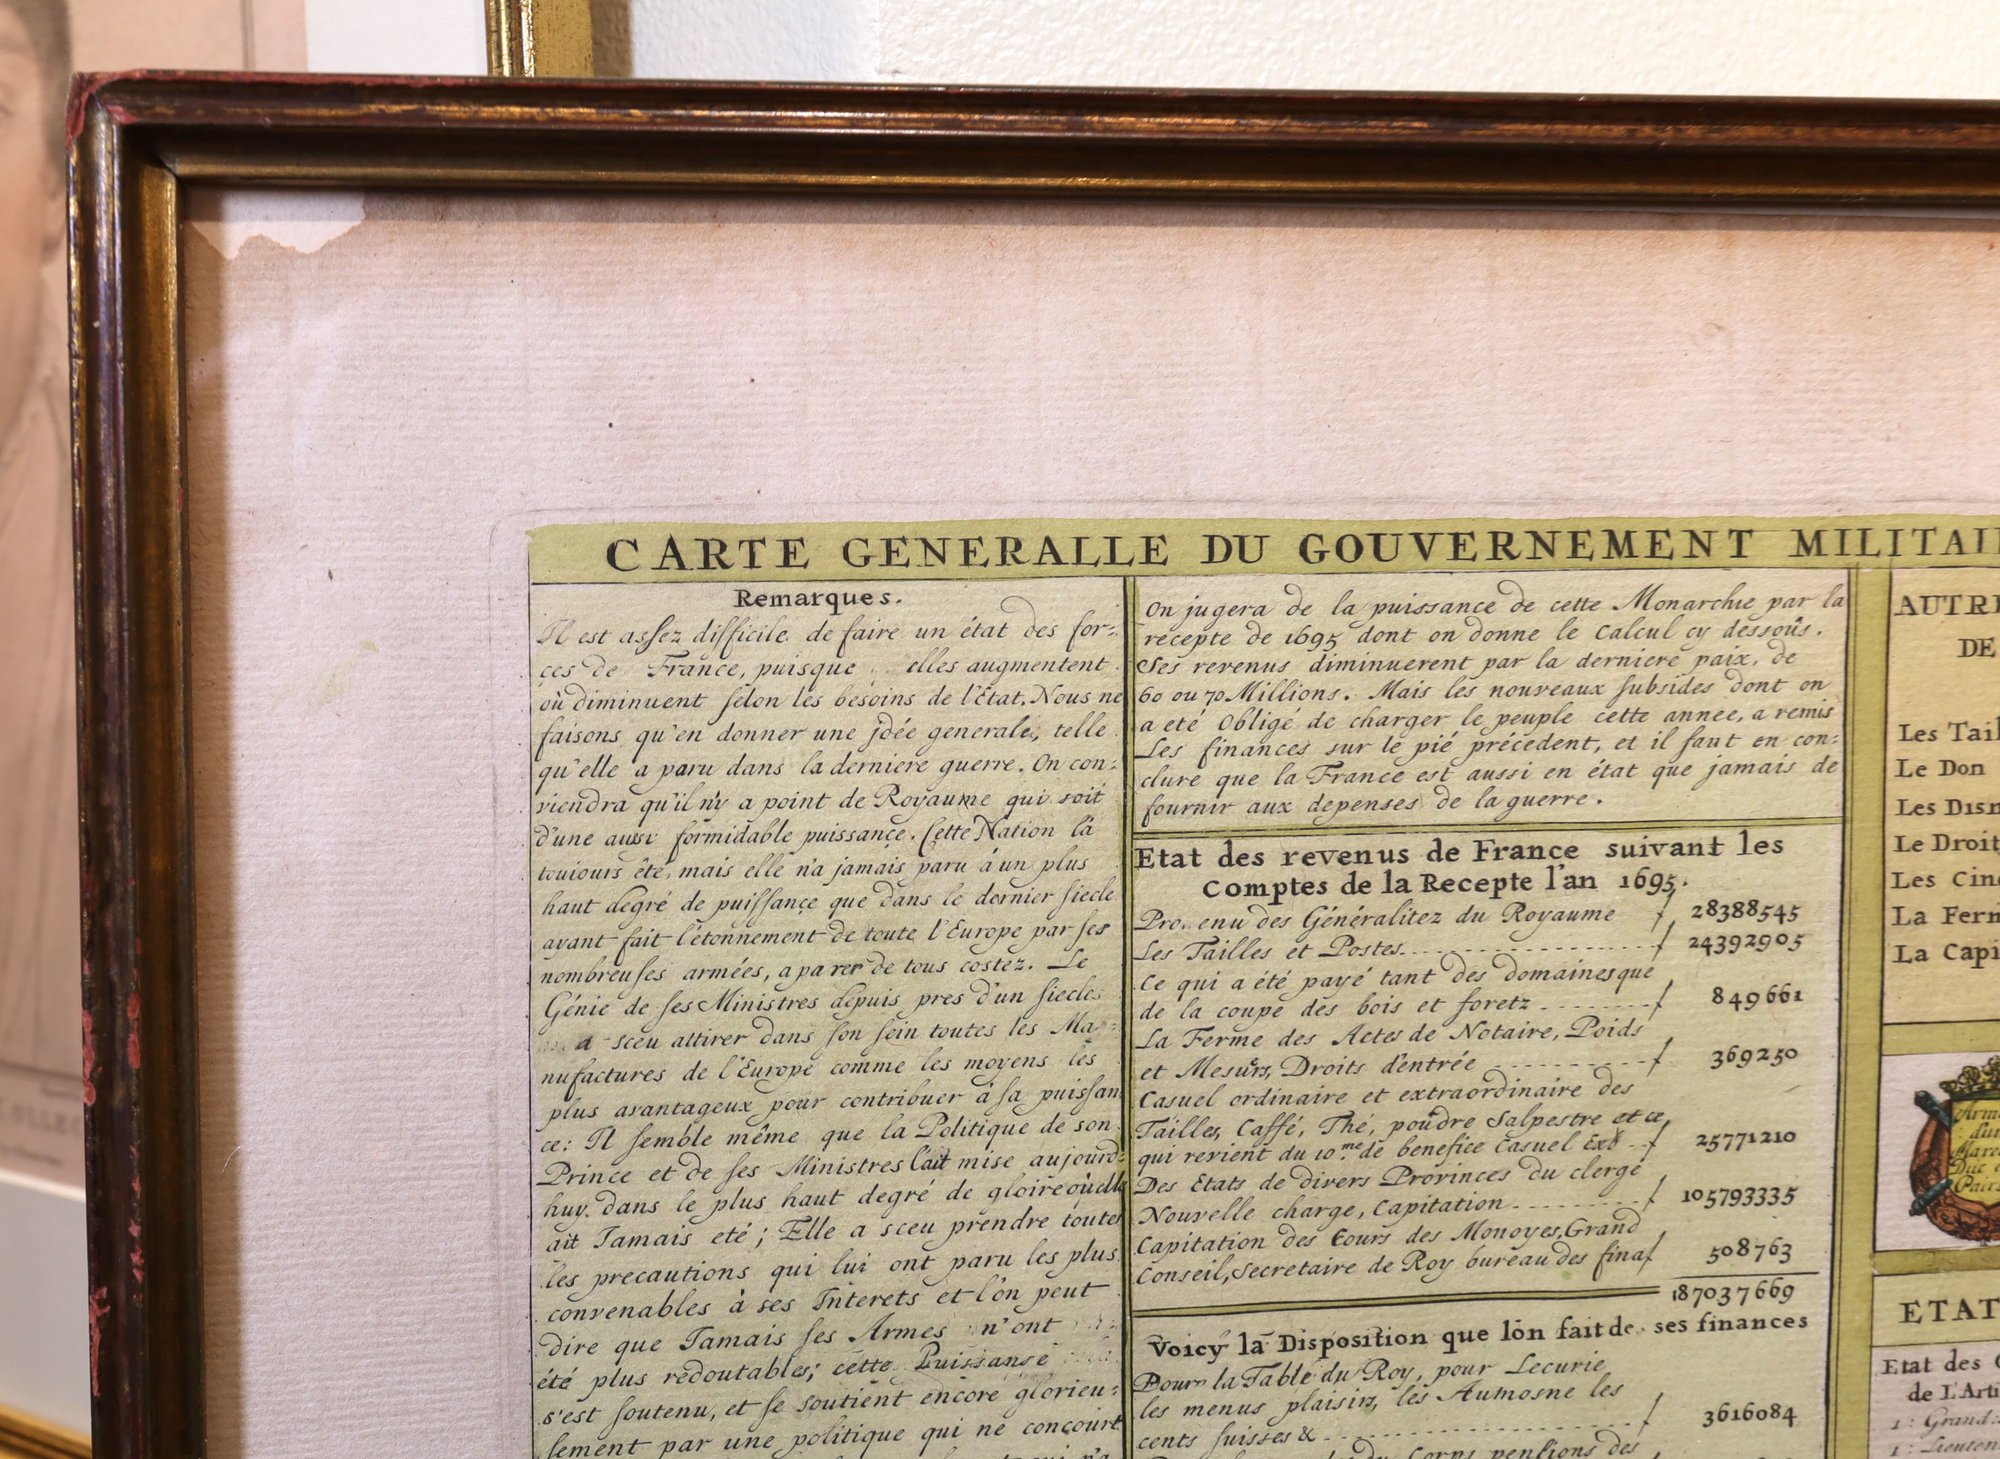 CARTE GENERALLE DU GOUVERNEMENT MILITAI
Remarques.
Il est assez difficile de faire un état des for-
ces de France, puisque elles augmentent
où diminuent sélon les besoins de l'Etat. Nous ne
faisons qu'en donner une jdée generale, telle
qu'elle a paru dans la derniere guerre. On con-
viendra qu'il n'y a point de Royaume qui soit
d'une aussi formidable puissance. Cette Nation la
toujours été, mais elle n'a jamais paru à un plus
haut degré de puissance que dans le dernier siecle
ayant fait l'étonnement de toute l'Europe par ses
nombreuses armées, a parer de tous costez. Le
Génie de ses Ministres depuis pres d'un siecles
a sceu attirer dans son sein toutes les Ma-
nufactures de l'Europe comme les moyens les
plus avantageux pour contribuer à sa puissan
ce: Il semble même que la Politique de son
Prince et de ses Ministres l'ait mise aujourd-
huy dans le plus haut degré de gloire où elle
ait Jamais eté; Elle a sceu prendre toutes
les precautions qui lui ont paru les plus
convenables à ses Interets et l'ôn peut
dire que Jamais ses Armes n'ont
été plus redoutables; cette Puissanse
s'est soutenu, et se soutient encore glorieu-
sement par une politique qui ne concourt
On jugera de la puissance de cette Monarchie par la
recepte de 1695 dont on donne le Calcul cy dessoûs.
Ses revenus diminuerent par la derniere paix, de
60 ou 70 Millions. Mais les nouveaux subsides dont on
a eté Obligé de charger le peuple cette année, a remis
Les finances sur le pié précedent, et il faut en con-
clure que la France est aussi en état que jamais de
fournir aux depenses de la guerre.
Etat des revenus de France suivant les
Comptes de la Recepte l'an 1695.
Pro enu des Généralitez du Royaume f 28388545
Les Tailles et Postes f 24392905
Ce qui a été payé tant des domaines que
de la coupe des bois et foretz f 849661
La Ferme des Actes de Notaire, Poids
et Mesurs, Droits d'entrée f 369250
Casuel ordinaire et extraordinaire des
Tailles, Caffé, Thé, poudre Salpestre et ce
qui revient du 10.me de benefice Casuel f 25771210
Des Etats de divers Provinces du clergé
Nouvelle charge, Capitation f 105793335
Capitation des Cours des Monoyes, Grand
Conseil, Secretaire de Roy bureau des fina f 508763
187037669
Voicy la Disposition que lôn fait de ses finances
Pour la Table du Roy, pour Lecurie
les menus plaisirs, les Aumosne les
cents suisses & f 3616084
Corps pensions des
AUTRE
DE
Les Tail
Le Don
Les Dism
Le Droit
Les Cinq
La Ferm
La Capi
Arme
d'un
Marec
Duc e
Pairs
ETAT
Etat des
de L'Arti
1: Grand
1: Lieuten